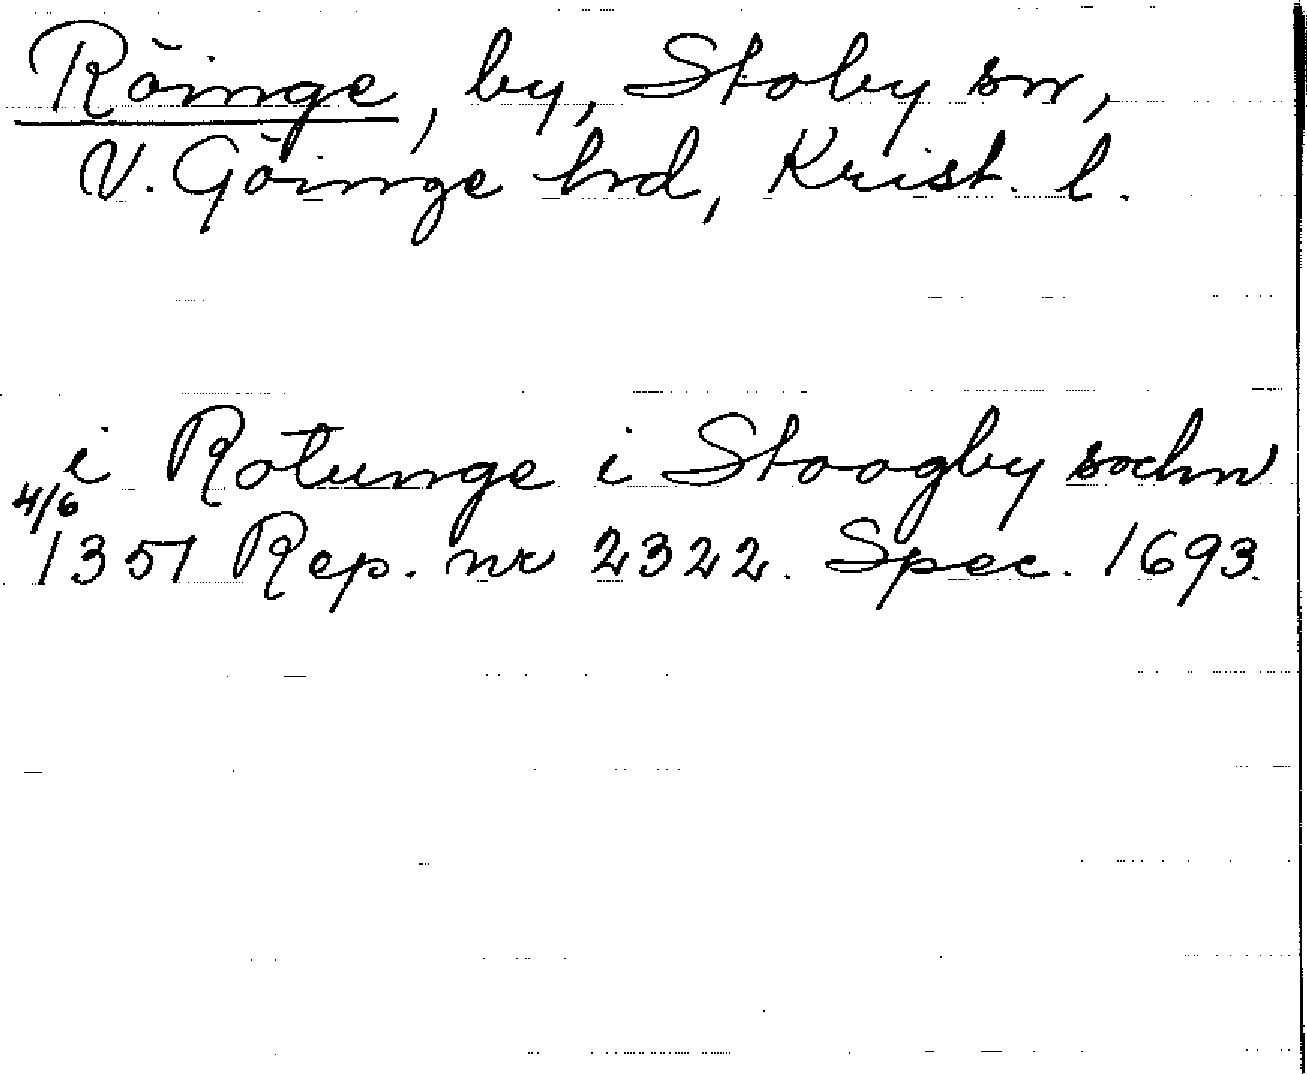 Röinge, by, Stoby sn,
V. Göinge hrd, Krist. l.
i Rotunge i Stoogby sochn
4/6 1351 Rep. nr 2322. Spec. 1693.